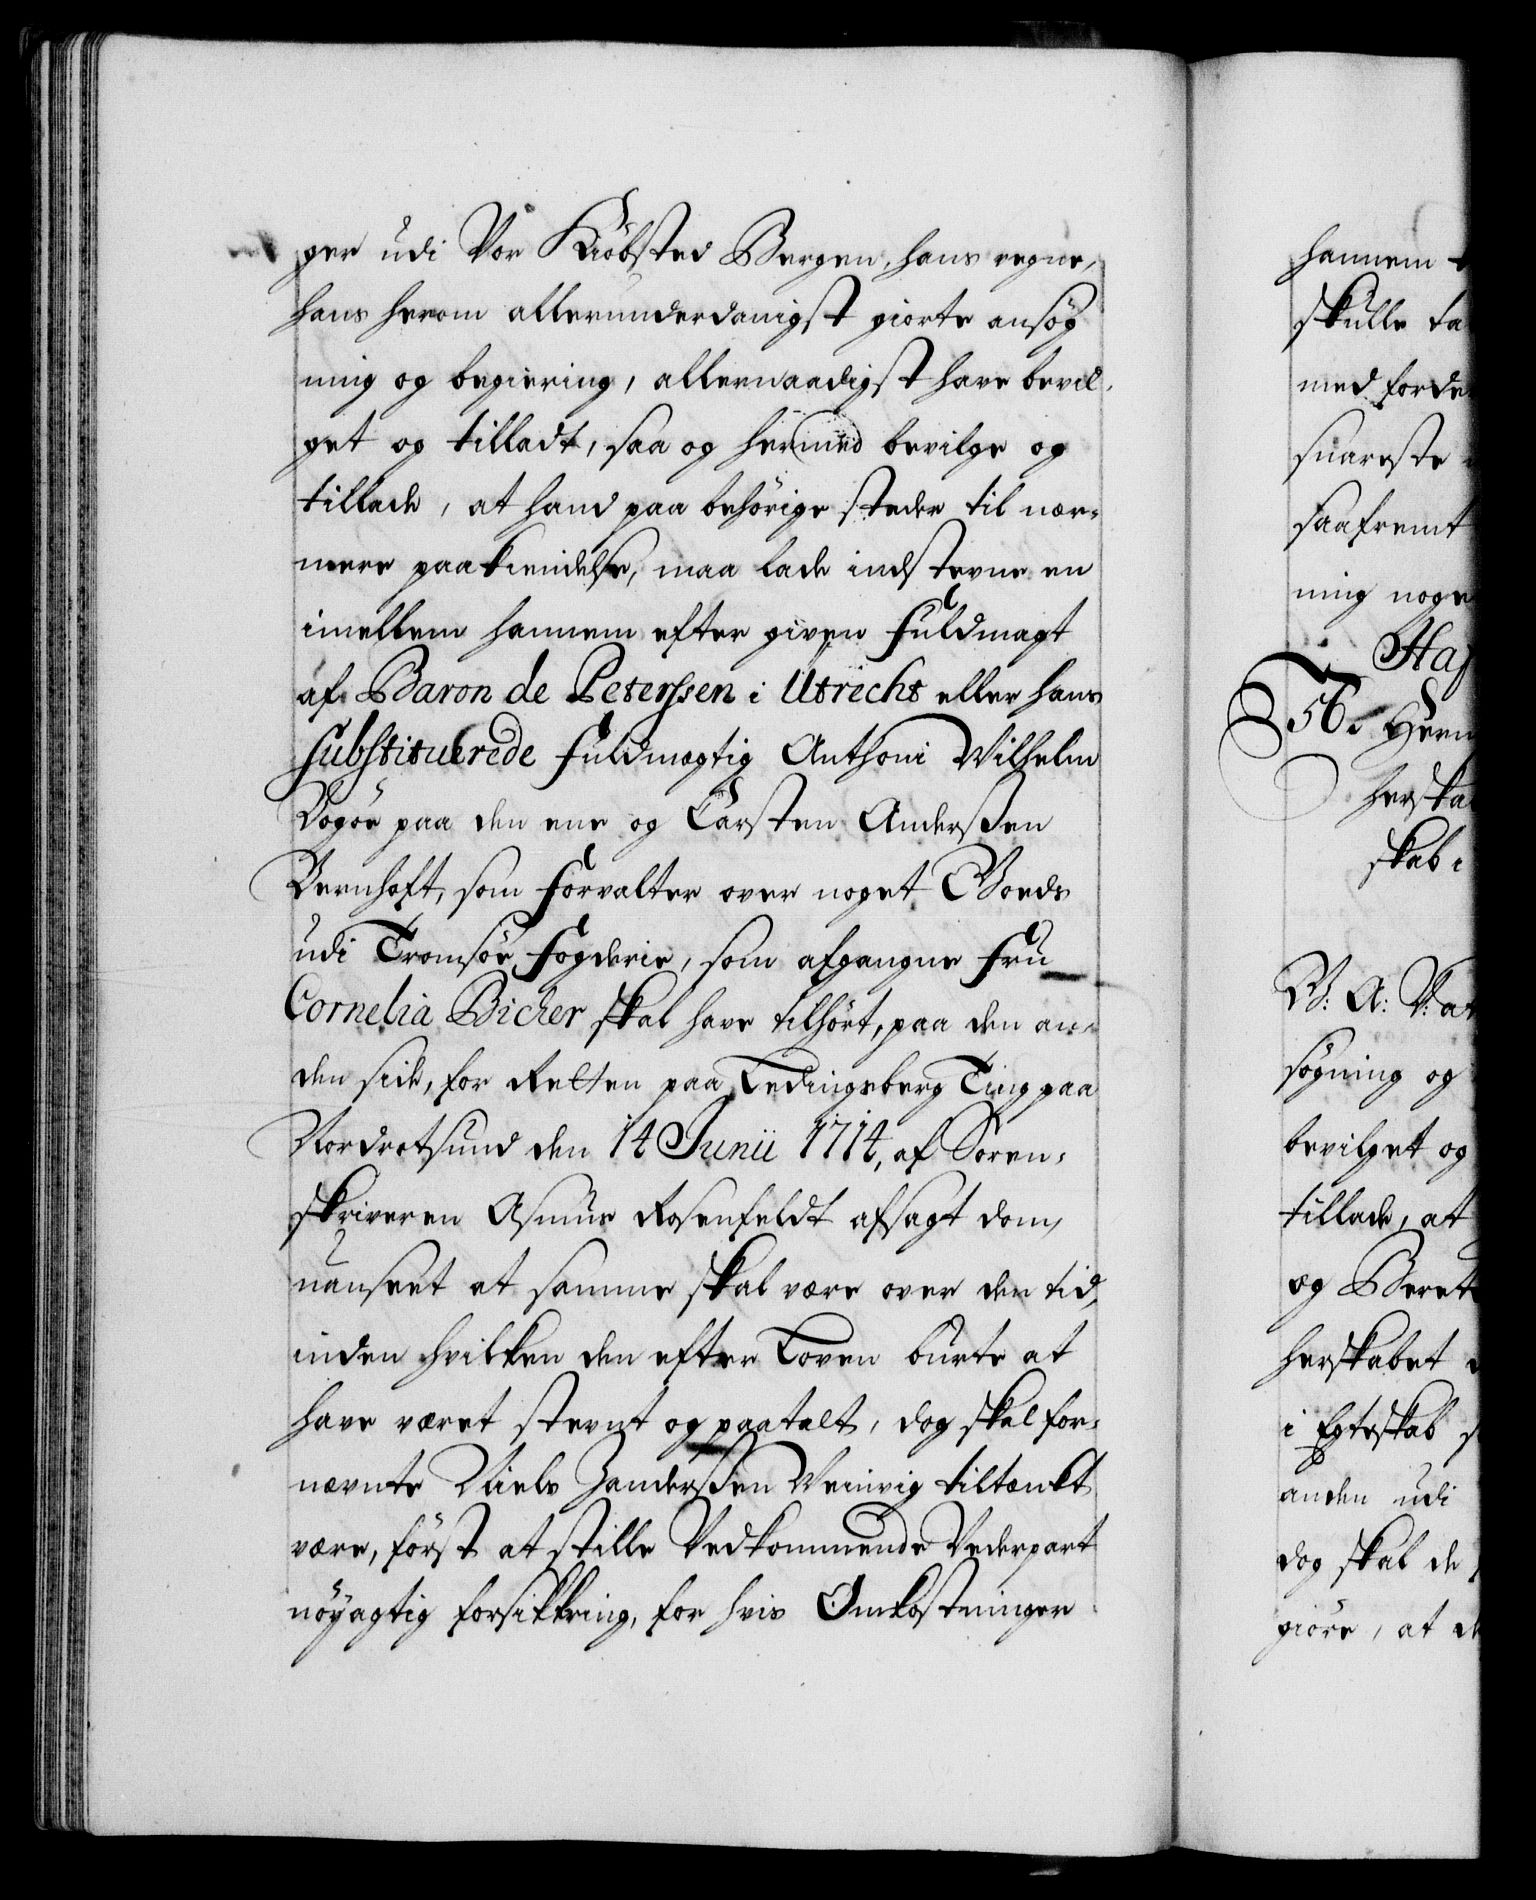 ger udi Vor Kiöbsted Bergen, hans egne,
hans herom allerunderdanigst giorte ansøg
ning og begiering, allernaadigst have bevil,
get og tilladt, saa og hermed bevilge og
tillade, at hand paa behörige steder til nær-
mere paakiendelse, maa lade indstevne en
imellem hannem efter given Fuldmagt
af Baron de Peterssen i Utrecht eller hans
substituerede Fuldmegtig Anthoni Wilhelm
paa den ene og Carsten Anderßen
Bernhoft, som Forvalter over noget Goeds
udi Tromsöe Fogderie, som afgangne Fru
Cornelia Bicker skal have tilhört, paa den an-
den side, for Retten paa Ting paa
den 14 Junii 1714, af Soren-
skriveren Asmus Rosenfeldt afsagt dom,
uanseet at samme skal være over den tid,
inden hvilken den efter Loven burte at
have været stevnt og paatalt, dog skal for-
nevnte Niels Zanderßen Weinvig tiltænkt
være, först at stille Vedkommende Vederpart
nöyagtig forsikkring, for hvis Omkostninger
hannem
skulle ta
med forde
suareste
saafremt
ning noge
Haf
56.
herska
skab i
V: A: V: at
søgning og
bevilget og
tillade, at
og Beret
herskabet
i Egteskab
anden udi
dog skal de
giöre, at